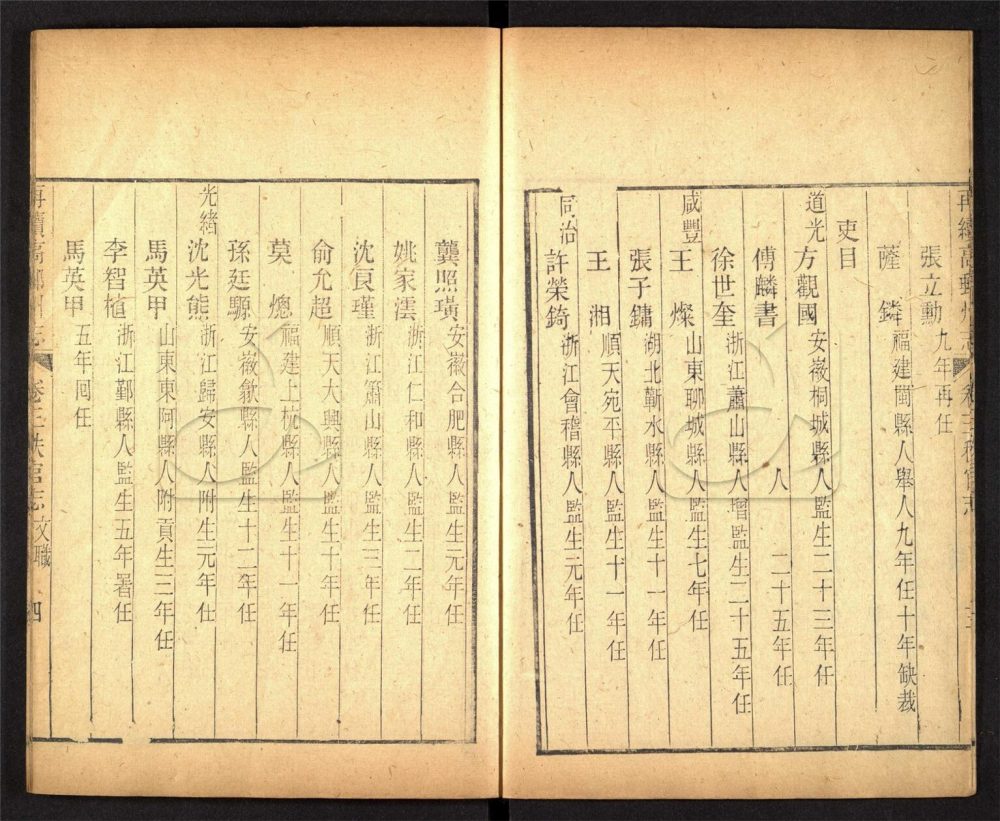 再續高郵州志 卷三秩官志
張立勳九年再任
薩 鏻福建閩縣人舉人九年任十年缺裁
吏目
道光 方觀國安徽桐城縣人監生二十三年任
傅麟書 人 二十五年任
徐世奎浙江蕭山縣人增監生二十五年任
咸豐 王 燦山東聊城縣人監生七年任
張子鏞湖北蘄水縣人監生十一年任
王 湘順天宛平縣人監生十一年任
同治 許榮錡浙江會稽縣人監生元年任
龔照璜安徽合肥縣人監生元年任
姚家澐浙江仁和縣人監生二年任
沈良瑾浙江蕭山縣人監生三年任
俞允超順天大興縣人監生十年任
莫 熜福建上杭縣人監生十一年任
孫廷顒安徽歙縣人監生十二年任
光緒 沈光熊浙江歸安縣人附生元年任
馬英甲山東東阿縣人附貢生三年任
李智植浙江鄞縣人監生五年署任
馬英甲五年囘任
再續高郵州志 卷三秩官志 文職 四